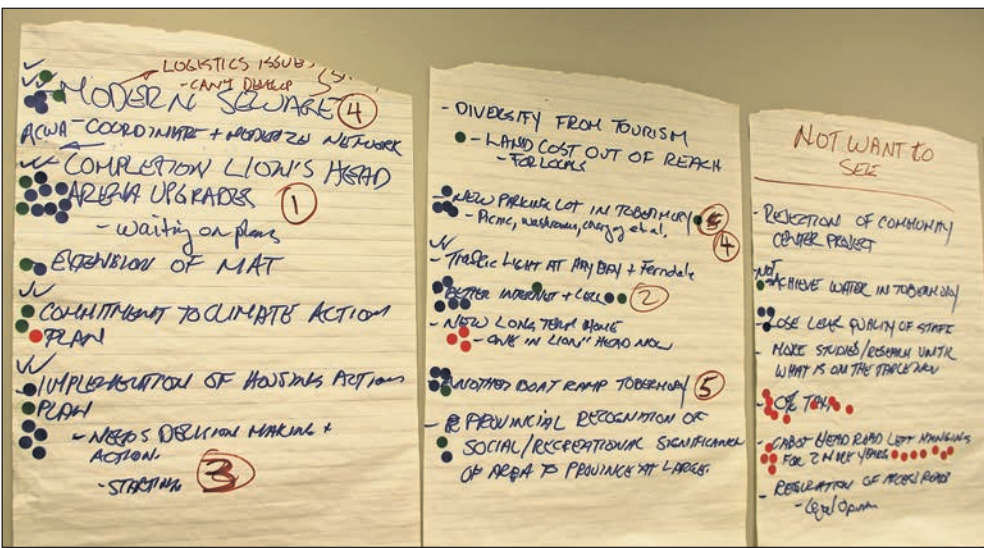 LOGISTICS ISSUES
- CAN'T DEVELOP
MODERN SEWAGE 4
ACWA - COORDINATE + MODERNIZE NETWORK
COMPLETION LION'S HEAD
ARENA UPGRADES 1
- waiting on plans
- EXTENSION OF MAT
COMMITMENT TO CLIMATE ACTION
PLAN
IMPLEMENTATION OF HOUSING ACTION
PLAN
- NEEDS DECISION MAKING +
ACTION.
- STARTING 3
- DIVERSIFY FROM TOURISM
- LAND COST OUT OF REACH
- FOR LOCALS
- NEW PARKING LOT IN TOBERMORY 5
- Picnic, washroom, charging et al. 4
- Traffic LIGHT AT HAY BAY + Ferndale
- BETTER INTERNET + CELL 2
- NEW LONG TERM HOME
- ONE IN LION" HEAD NOW
- ANOTHER BOAT RAMP TOBERMORY 5
- PROVINCIAL RECOGNITION OF
SOCIAL/RECREATIONAL SIGNIFICANCE
OF AREA TO PROVINCE AT LARGE.
NOT WANT TO
SEE
- REJECTION OF COMMUNITY
CENTER PROJECT
- NOT
ACHIEVE WATER IN TOBERMORY
- LOSE LEVEL QUALITY OF STAFF
- MORE STUDIES/RESEARCH UNTIL
WHAT IS ON THE TABLE NOW
- 0% TAX
- CABOT HEAD ROAD LEFT HANGING
FOR 2 MORE YEARS
- OF ACCESS ROADS
- Legal Opinion